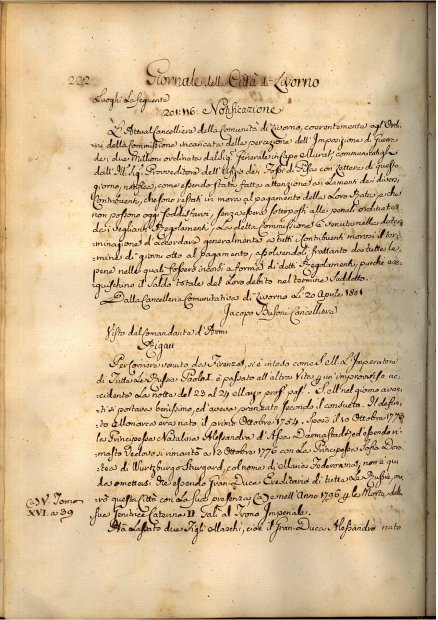 222 Giornale della Città di Livorno
Luoghi Le seguente
201:116 Notificazione
L'Attual Cancelliere della Comunità di Livorno, coerentemente agl'Ordini
della Commissione incaricata della percezione dell'Imposizione di guerra
dei due Milioni ordinata dal Sig. Generale in Capo Murat, comunicatagli
dall'Ill. Sig. Provveditore dell'Ufizio dei Fossi di Pisa con Lettera di questo
giorno, notifica, come essendo stata fatta attenzione ai Lamenti dei diversi
Contribuenti, che sono restati in mora al pagamento della Loro Rata, e che
non possono oggi soddisfarvi, senza essere sottoposti alle penali ordinate
da veglianti Regolamenti, La detta Commissione è venuta nella determinazione
d'accordare generalmente a tutti i Contribuenti morosi il termine
di giorni otto al pagamento, assolvendoli frattanto da tutte le
pene nelle quali fossero incorsi a forma di detti Regolamenti, purché eseguischino
il Saldo totale del Loro debito nel termine Suddetto.
Dalla Cancelleria Comunitativa di Livorno Li 20 Aprile 1801
Jacopo Busoni Cancelliere
Visto dal Comandante d'Armi
Aigau
Per Corriere venuto da Firenze, si è inteso come S. e LL. L'Imperatore
di Tutte Le Russie Paolo I. è passato all'altra Vita p. un'improvviso accidente
La notte del 23 al 24 Marzo pros. pas. S. ell nel giorno avanti
si portava benissimo, ed aveva pranzato secondo il consueto. Il defunto
Monarca era nato il primo Ottobre 1754. Sposò il 10 Ottobre 1773
La Principessa Natalina Alessandra d'Assia Darmstadt, ed essendo rimasto
Vedovo si rimaritò a 13 Ottobre 1776 con La Principessa Sofia Dorotea
di Wurtzburgo Sturgord, col nome di Maria Foderovna, non è quida
da omettersi che essendo Gran-Duca Ereditario di tutta La Russia, onorò
questa Città con La sua presenza
Ca IV Tomo
XVI. a 39
nell'Anno 1796 e La Morte della
sua Genitrice Caterina II Salì al Trono Imperiale.
Ha Lasciato due Figli Maschi, cioè il Gran-Duca Alessandro nato